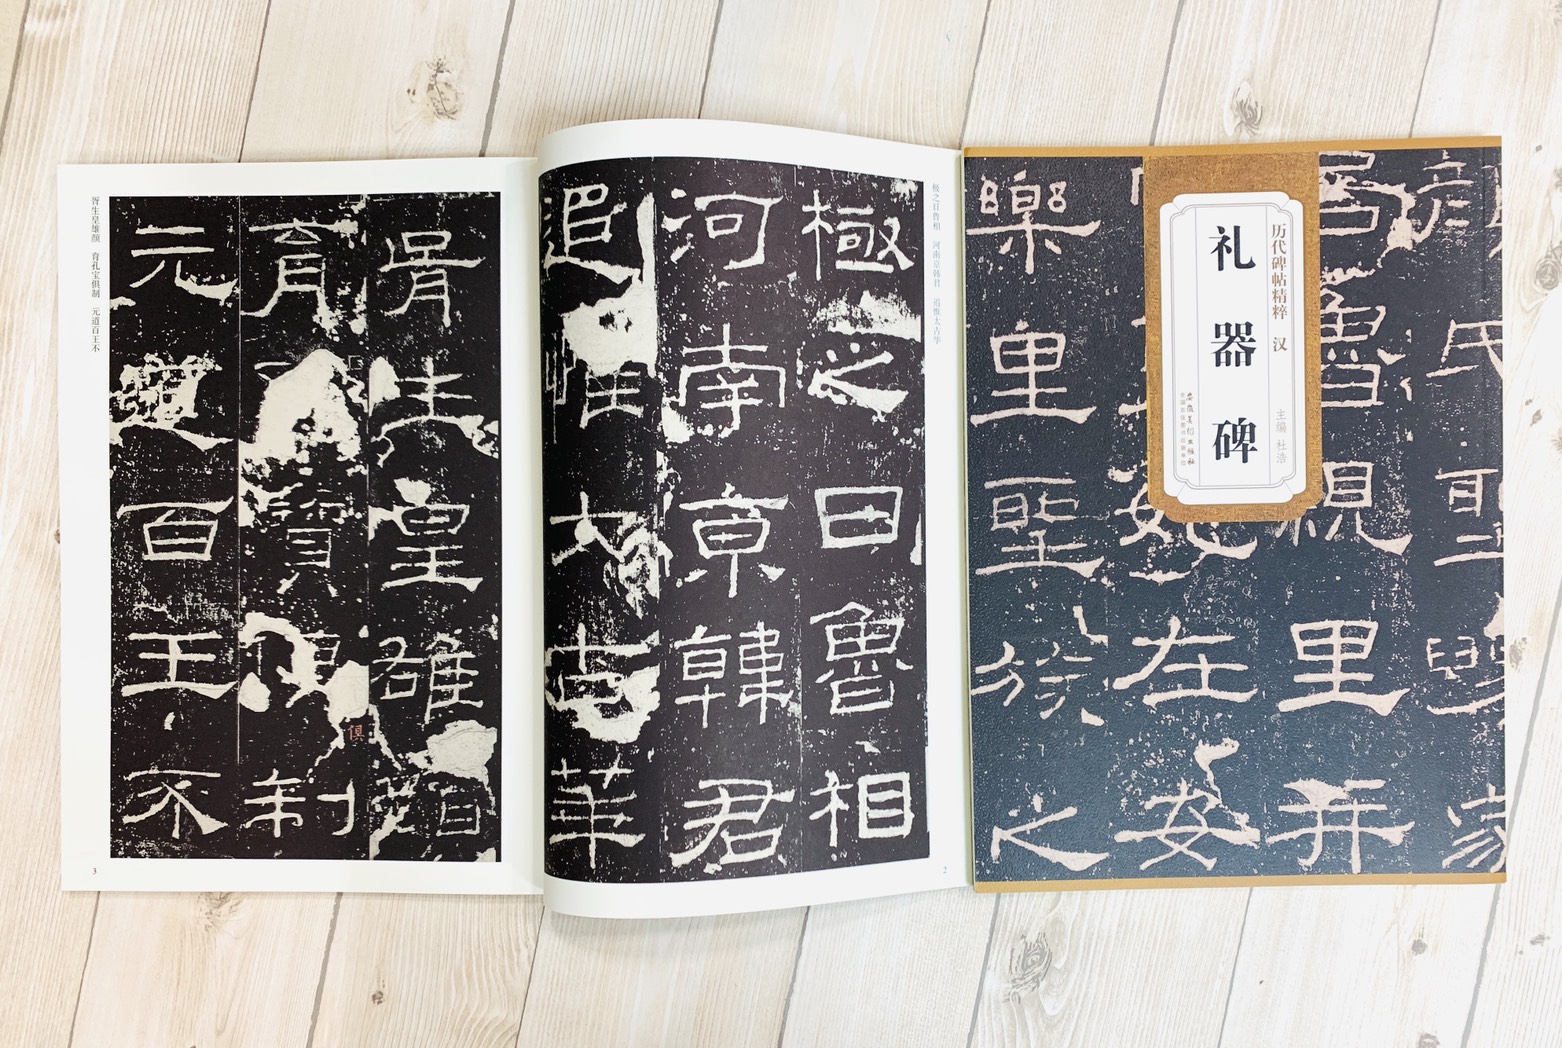 历代碑帖精粹 汉
礼器碑
主编 杜浩
氏聖舅家
魯親里并
妃在安
樂里聖族之
极之日鲁相 河南京韩君 追惟太古华
極之日魯相
河南京韓君
追惟大古華
2
胥生皇雄颜 育孔宝俱制 元道百王不
胥生皇雄顏
育孔寶俱制
俱
元道百王不
3